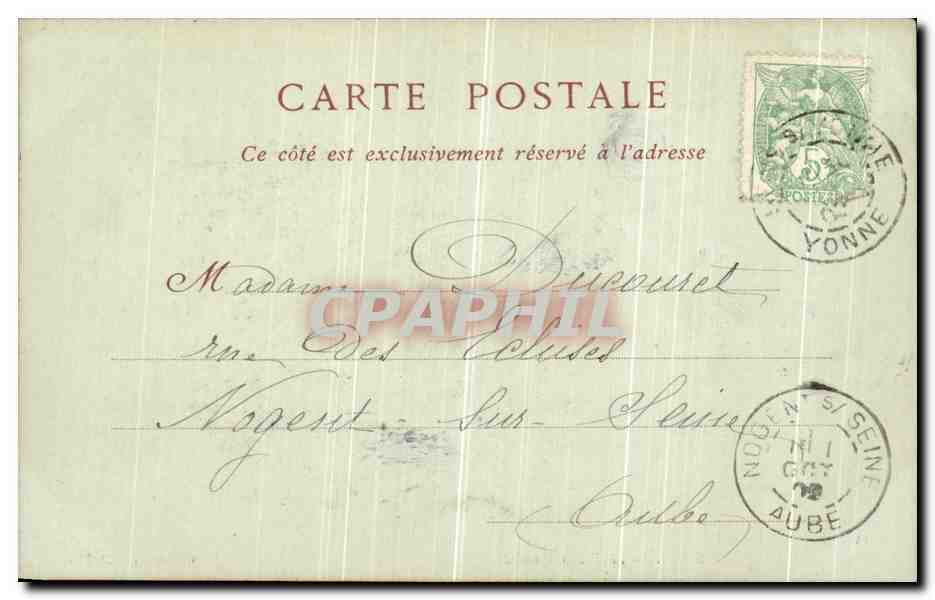 CARTE POSTALE
Ce côté est exclusivement réservé à l'adresse
5
POSTES
YONNE
Madame Ducouret
CPAPHIL
rue Des Ecluses
Nogent-Sur-Seine
Aube
NOGENT S/ SEINE
OCT
02
AUBE